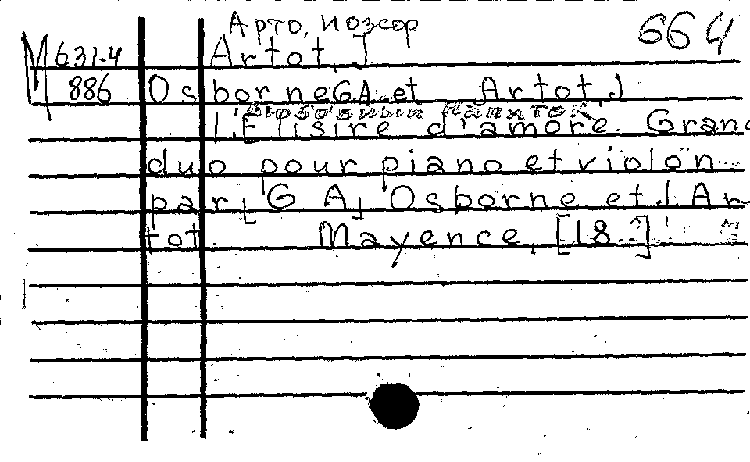 Арто, Иозеф 664
М 631-4 Artot, J
886 Osborne G.A. et Artot, J
Любовный напиток
L'Elisire d'amore. Grand
duo pour piano et violon
par [G A] Osborne et J Ar
tot. Mayence, [18..?]